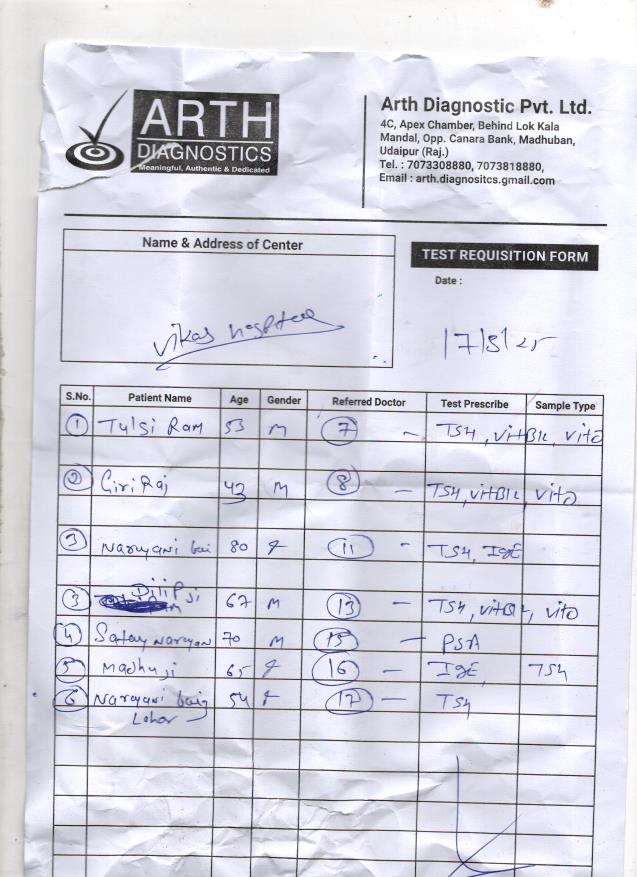 ARTH
DIAGNOSTICS
Meaningful, Authentic & Dedicated
Arth Diagnostic Pvt. Ltd.
4C, Apex Chamber, Behind Lok Kala
Mandal, Opp. Canara Bank, Madhuban,
Udaipur (Raj.)
Tel. : 7073308880, 7073818880,
Email : arth.diagnositcs.gmail.com
Name & Address of Center
TEST REQUISITION FORM
Date :
Vikas Hospital
17/5/25
S.No. Patient Name Age Gender Referred Doctor Test Prescribe Sample Type
1 Tulsi Ram 53 M 7 - TSH, VitB12, VitD
2 Giri Raj 43 M 8 - TSH, VitB12, VitD
3 Narayani bai 80 F 11 - TSH, IgE
3 Dilip ji 67 M 13 - TSH, VitB12, VitD
4 Satay narayan 70 M 15 - PSA
5 Madhu ji 65 F 16 - IgE, TSH
6 Narayani bai 54 F 17 - TSH
Lohar